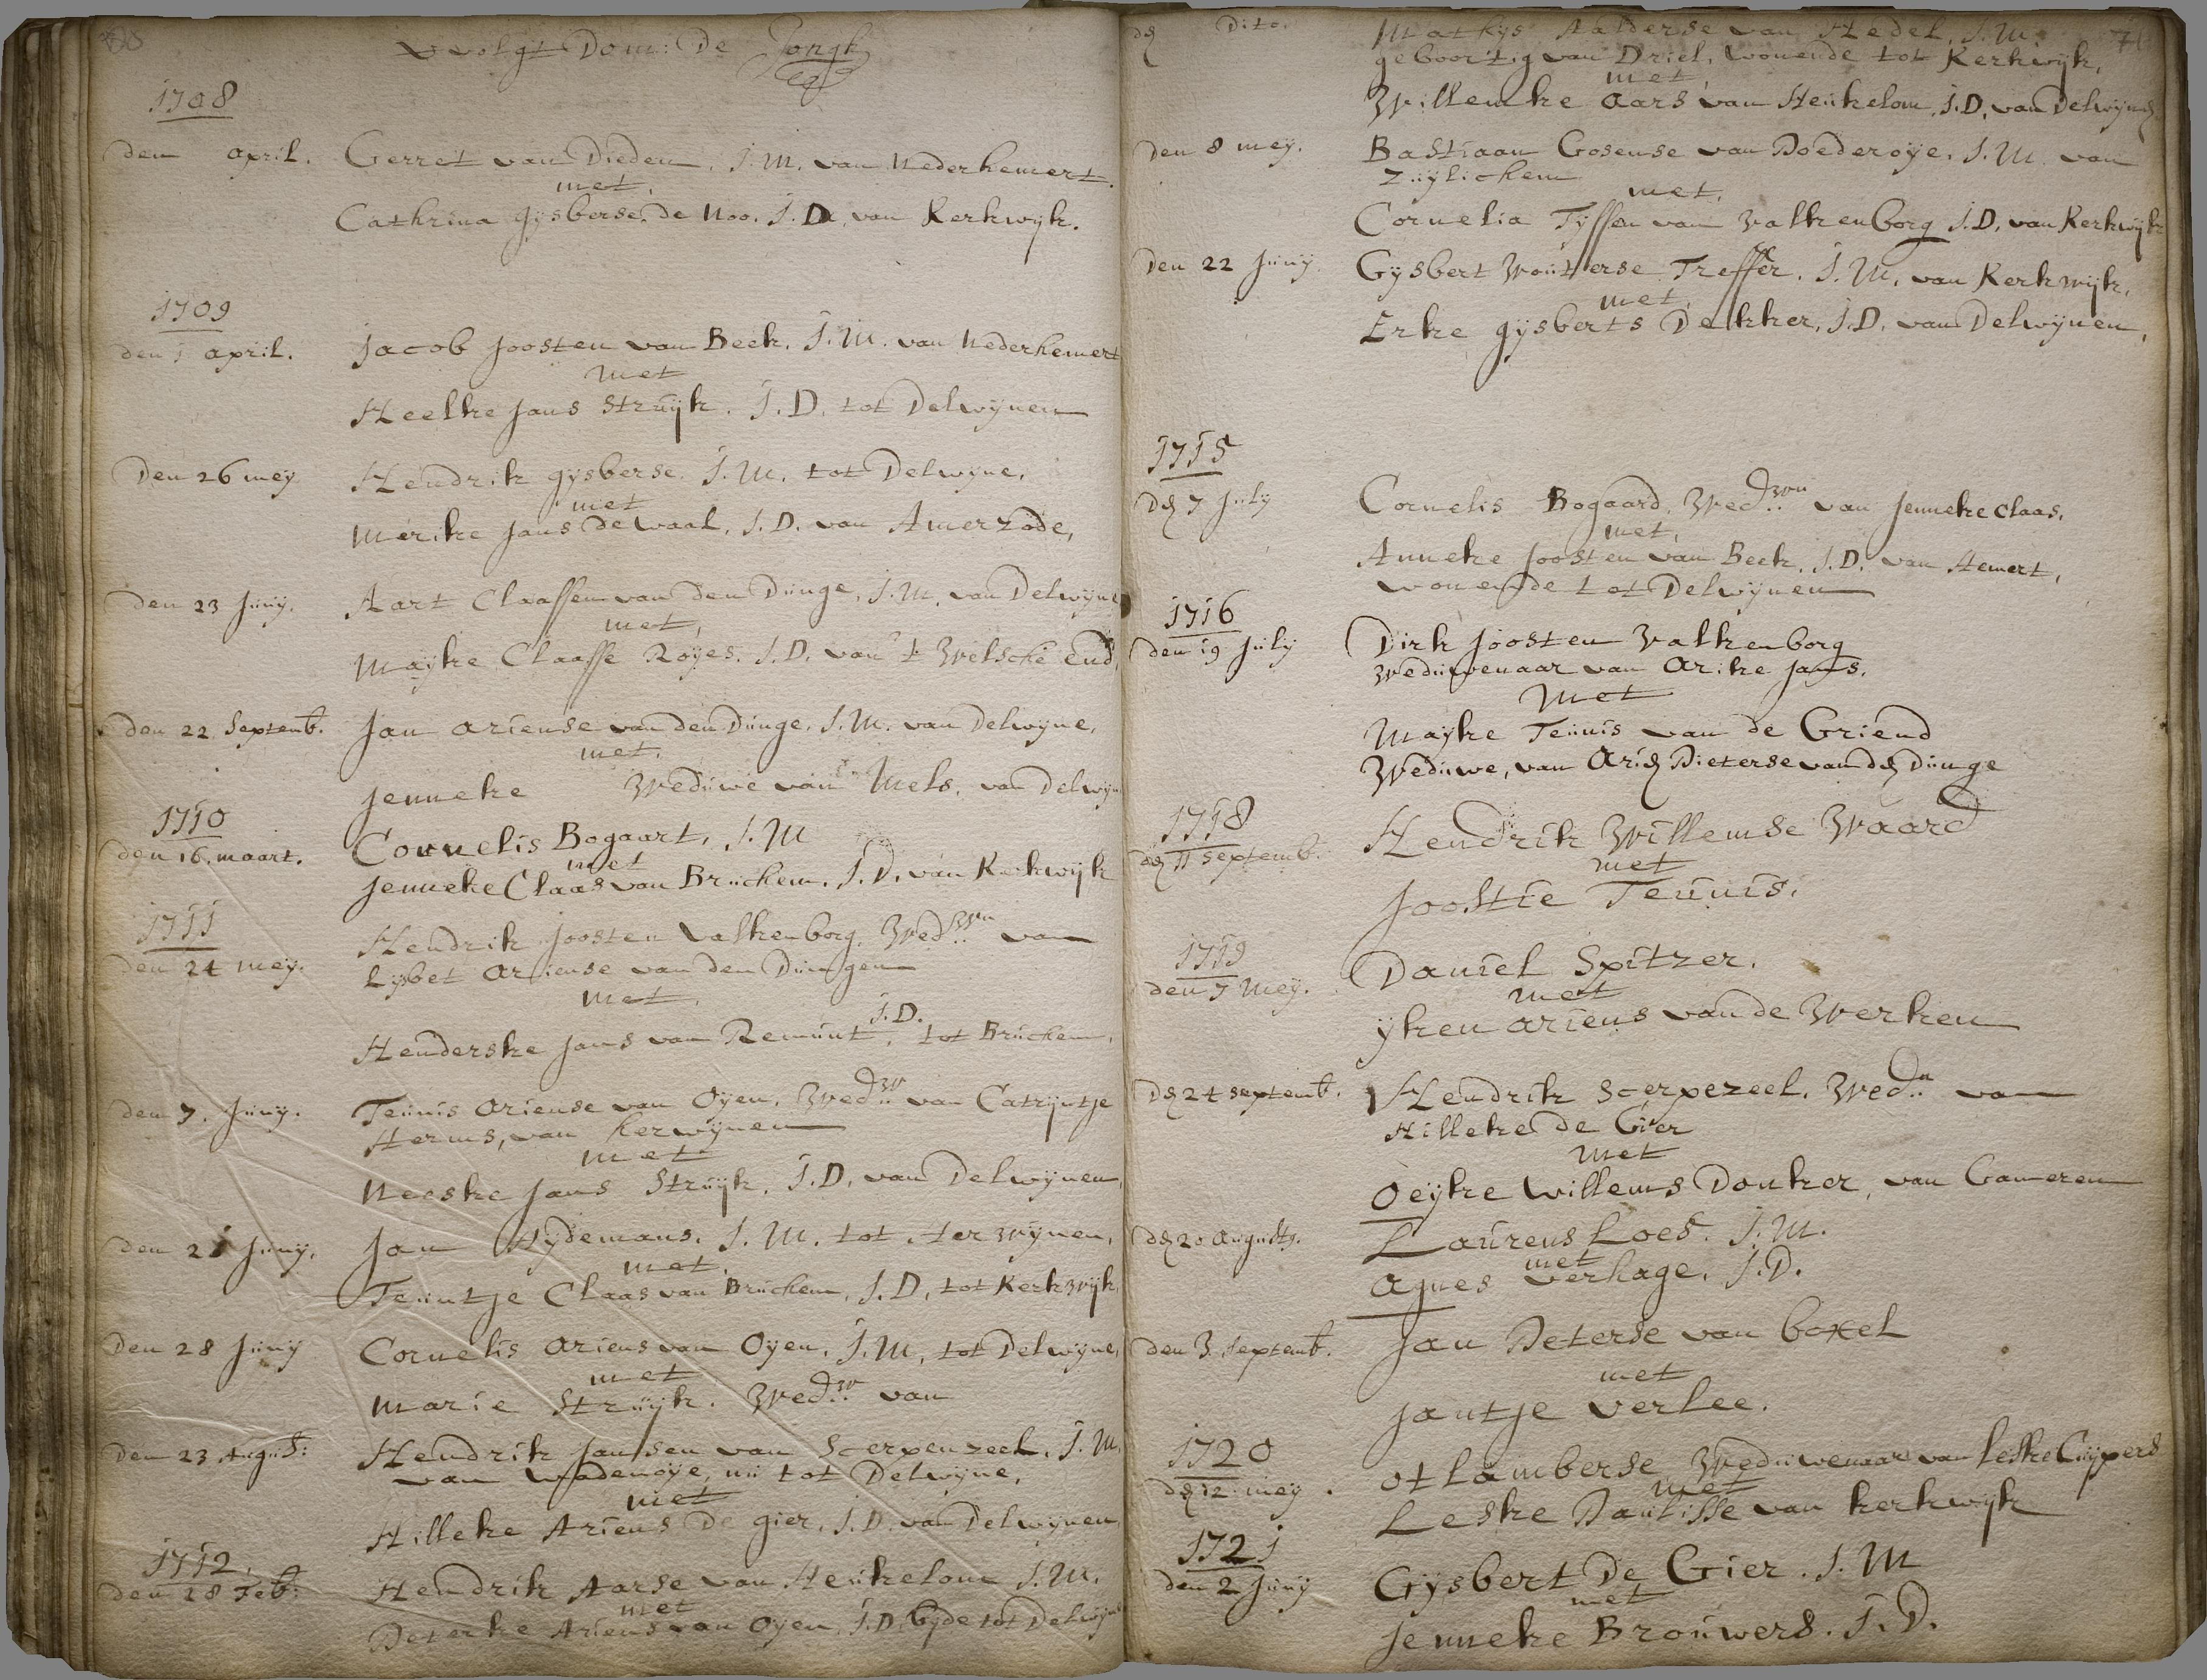 vvolgt Dom: De Jongh
1708
den april. Gerret van Dieden, J.M. van Nederhemert.
met,
Cathrina gijsberse de Noo. J.D. van Kerkwijk.
1709
den 1 april. Jacob Joosten van Beek. J.M. van Nederhemert
met
Heelke Jans Struijk. J.D. tot Delwijnen
Den 26 meij Hendrik gijsberse. J.M. tot Delwijne,
met
Merike Jans de waal, J.D. van Amerzode,
den 23 Junij. Aart Claassen van den Dunge, J.M. van Delwijne
met,
Maijke Claasse Roijes. J.D. van 't Welsche end,
den 22 Septemb. Jan ariense van den Dunge. J.M. van Delwijne,
met,
Jenneke Weduwe van Mels, van Delwijn
1710
den 16. maart. Cornelis Bogaart, J.M
met
Jenneke Claas van Bruchem. J.D. van Kerkwijk
1711
den 24 meij. Hendrik Joosten valkenborg. Wed.wn van
Lijsbet Ariense van den Dungen
met,
J.D.
Henderske Jans van Remunt, tot Bruchem,
den 7. Junij. Teunis Ariense van Oijen, Wed.w van Catrijntje
Herms, van herwijnen
met
Neeske Jans Struijk, J.D. van Delwijnen,
den 21 Junij, Jan Hijdemans. J.M. tot Herwijnen,
met,
Teuntje Claas van Bruchem, J.D, tot Kerkwijk,
Den 28 Junij Cornelis Ariens van Oijen, J.M, tot Delwijne,
met
Marie Struijk. Wed.w van
Den 23 August: Hendrik Jansen van Scerpenzeel, J.M,
van wadenoije, nu tot Delwijne,
met
Hilleke Ariens De gier, J.D. van Delwijnen,
1712.
den 28 Feb: Hendrik Aarse van Heukelom J.M.
met
Peterke Ariens van Oijen, J.D. bijde tot Delwijne
dn Dito. Mathijs Aalderse van Hedel, J.M.
geboortig van Driel, wonende tot Kerkwijk,
met,
Willemke Aars van Heukelom, J.D. van Delwijnen
Den 8 meij. Bastiaan Gosense van Poederoije. J.M. van
Zuijlichem
met,
Cornelia Tijssen van valkenborg J.D. van Kerkwijk
Den 22 Junij Gijsbert Wouterse Treffer. J.M. van Kerkwijk,
met,
Erke gijsberts Dekker, J.D. van Delwijnen,
1715
Dn 7 Julij Cornelis Bogaard, Wed.wn van Jenneke Claas,
met,
Anneke Joosten van Beek, J.D. van Hemert,
wonende tot Delwijnen
1716
den 19 Julij Dirk Joosten valkenborg
Weduwenaar van Arike Jans.
Met
Maijke Teunis van de Griend
Weduwe, van Arien Pieterse van den Dunge
1718
dn 11 septemb. Hendrik Willemse Waard
met
Joostie Teunis.
1719
den 7 Meij. Daniel Spitzer.
met
ijken ariens van de Werken
Dn 24 septemb. Hendrik Scerpezeel. Wed.n van
Hilleke de Gier
Met
Oeijke willems Donker, van Gameren
dn 20 Augusty. Laurens Loes. J.M.
met
Agnes verhage, J.D.
den 3 Septemb. Jan Peterse van boxel
met
Jantje verlee.
1720
dn 12 meij. ot lamberse Weduwenaar van leske Cuijpers
met
Leske Paulisse van kerkwijk
1721
den 2 Junij Gijsbert De Gier. J.M
met
Jenneke Brouwers. J.D.